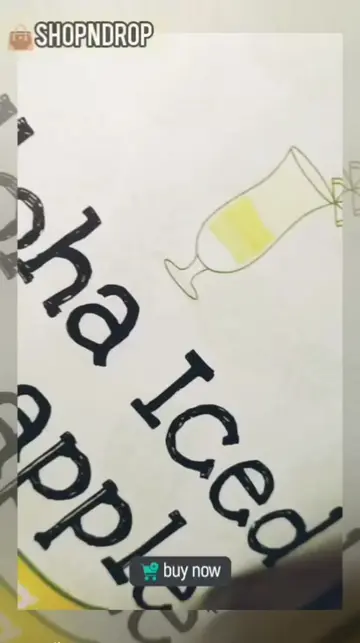 SHOPNDROP
oha Iced
apple
buy now